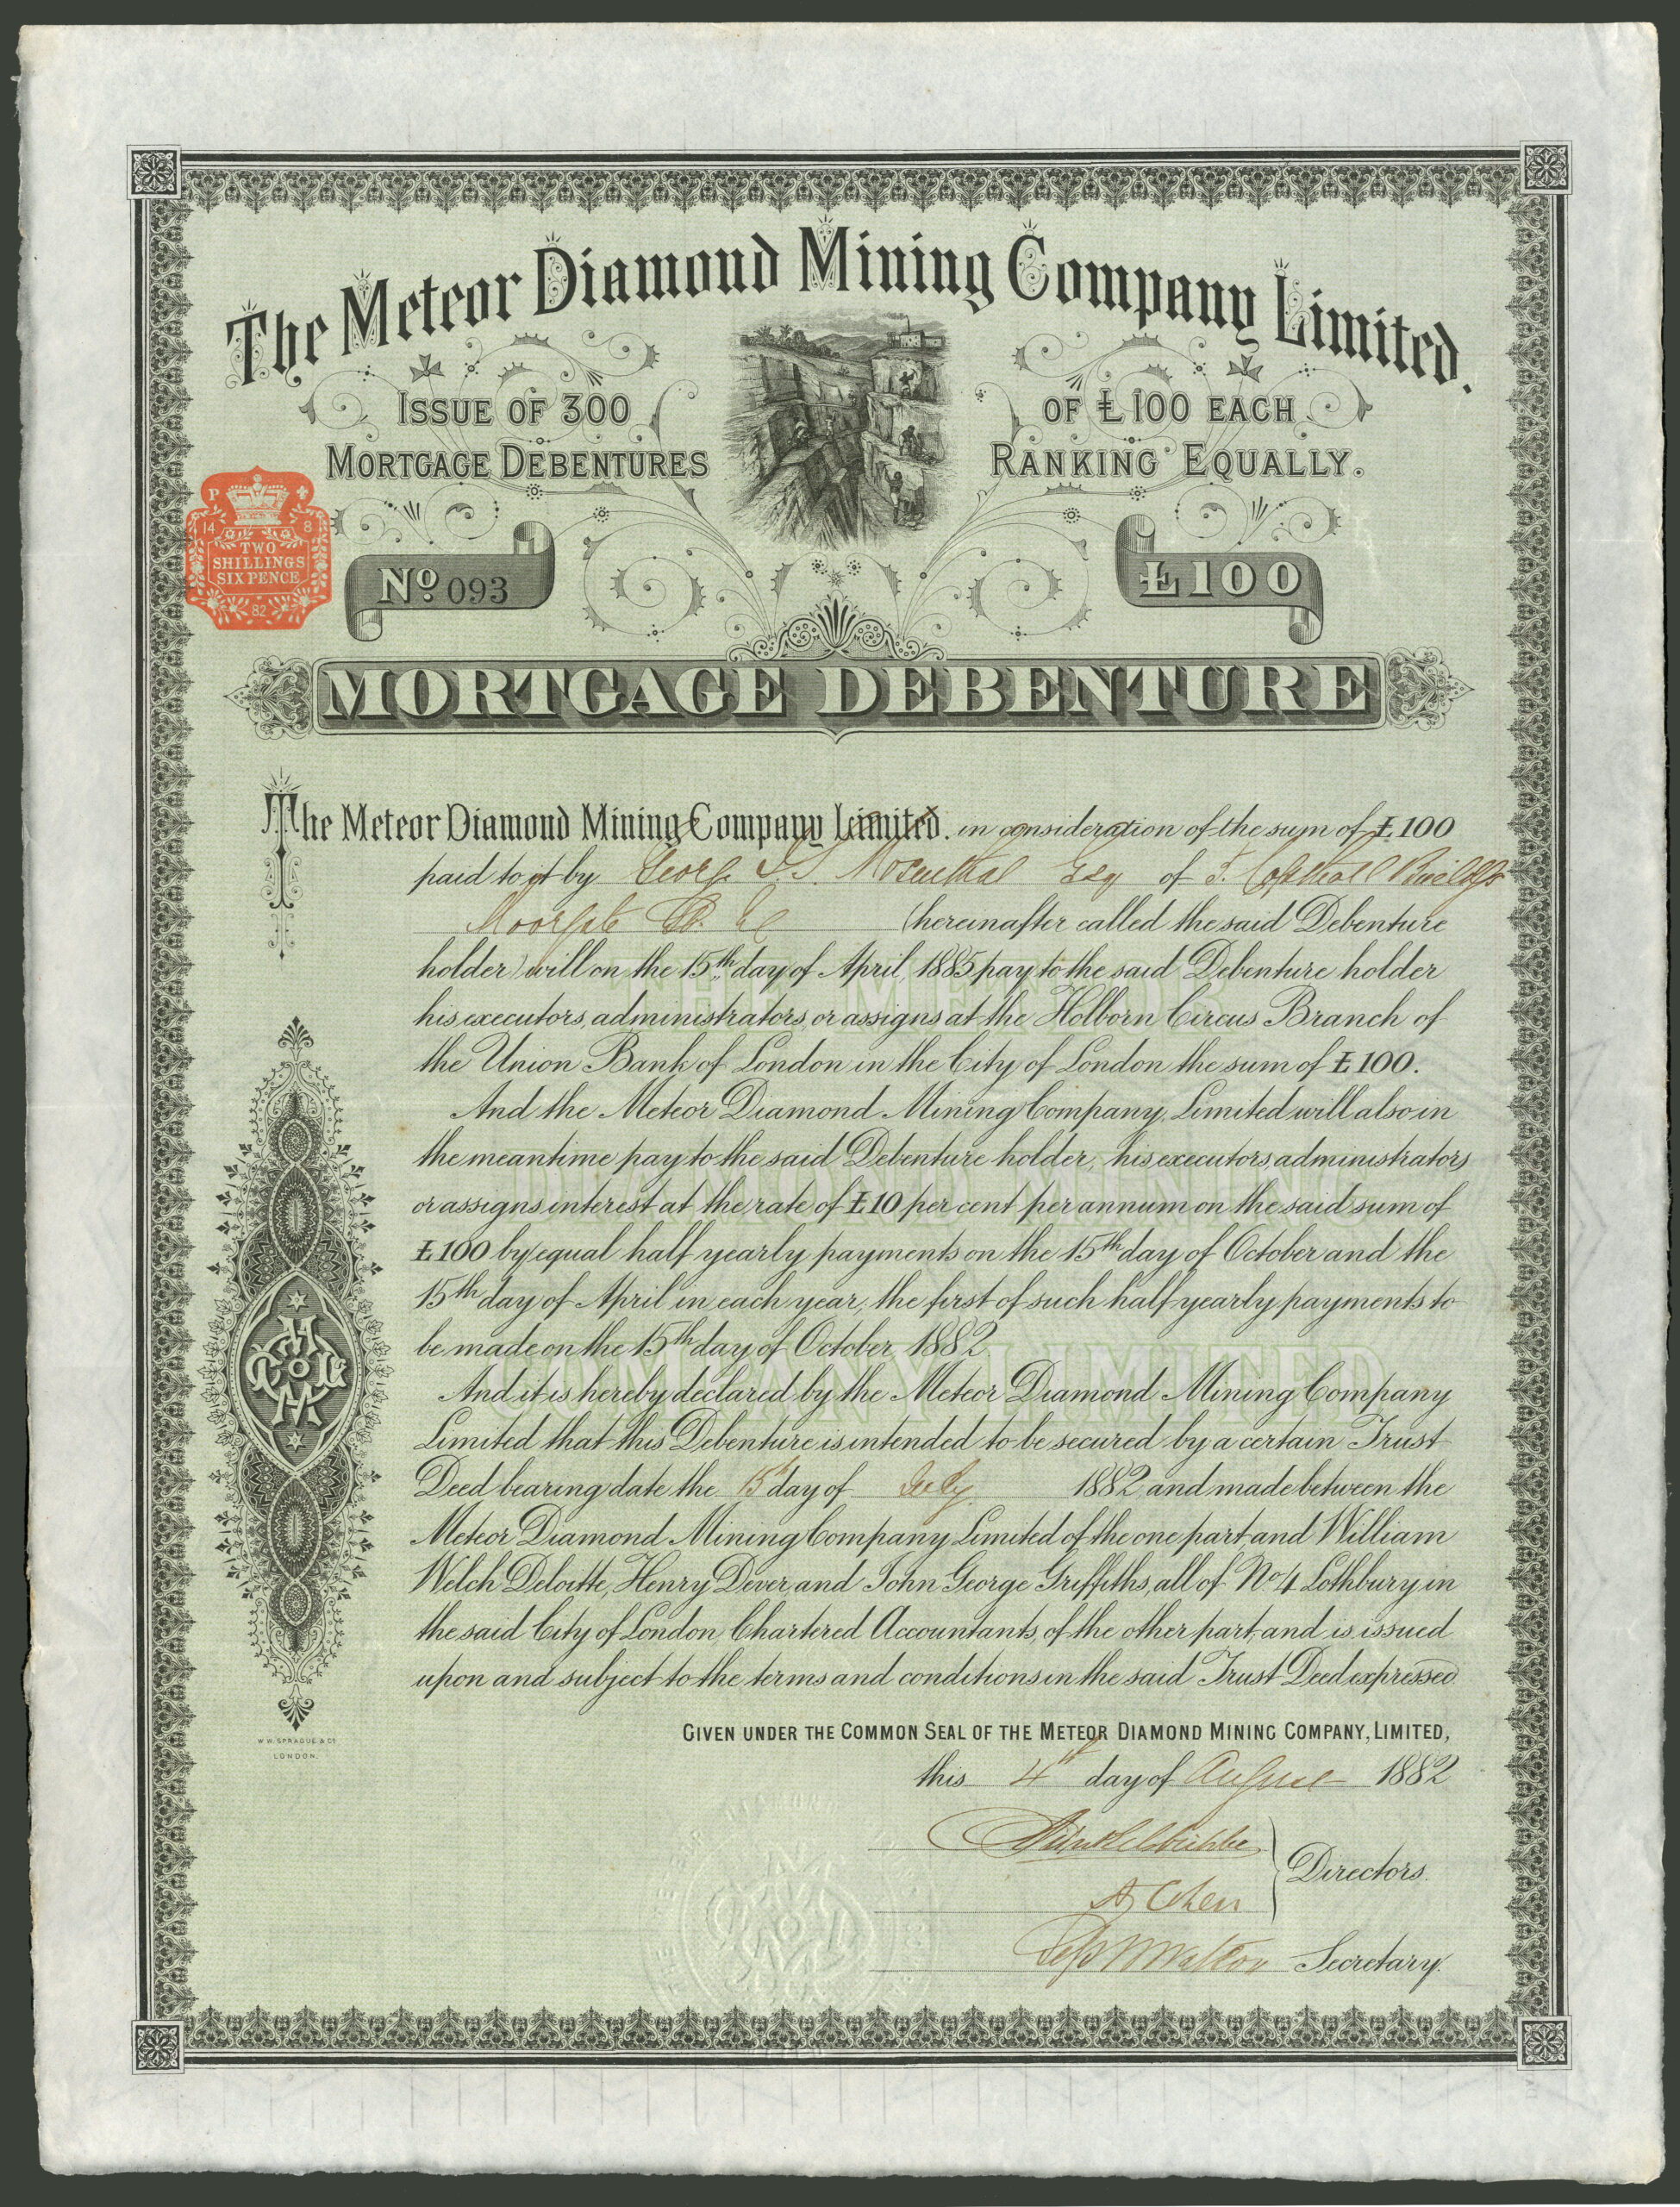 The Meteor Diamond Mining Company Limited.
ISSUE OF 300
MORTGAGE DEBENTURES
OF £100 EACH
RANKING EQUALLY.
P
14 8
TWO
SHILLINGS
SIXPENCE
82
No 093
£100
MORTGAGE DEBENTURE
The Meteor Diamond Mining Company Limited. in consideration of the sum of £100
paid to it by George Rosenthal Esq of 5. Copthall Buildgs
Moorgate St. EC (hereinafter called the said Debenture
holder) will on the 15th day of April, 1885 pay to the said Debenture holder
his executors, administrators, or assigns at the Holborn Circus Branch of
the Union Bank of London in the City of London the sum of £100.
And the Meteor Diamond Mining Company, Limited will also in
the meantime pay to the said Debenture holder, his executors, administrators
or assigns interest at the rate of £10 per cent per annum on the said sum of
£100 by equal half yearly payments on the 15th day of October and the
15th day of April in each year, the first of such half yearly payments to
be made on the 15th day of October, 1882.
And it is hereby declared by the Meteor Diamond Mining Company
Limited that this Debenture is intended to be secured by a certain Trust
Deed bearing date the 15th day of July 1882 and made between the
Meteor Diamond Mining Company Limited of the one part, and William
Welch Deloitte, Henry Dever, and John George Griffiths, all of No 4 Lothbury in
the said City of London, Chartered Accountants, of the other part, and is issued
upon and subject to the terms and conditions in the said Trust Deed expressed.
GIVEN UNDER THE COMMON SEAL OF THE METEOR DIAMOND MINING COMPANY, LIMITED,
this 4th day of August 1882
Directors.
A Cohen
Walton Secretary.
THE METEOR
DIAMOND MINING
COMPANY LIMITED
W.W. SPRAGUE & Co
LONDON.